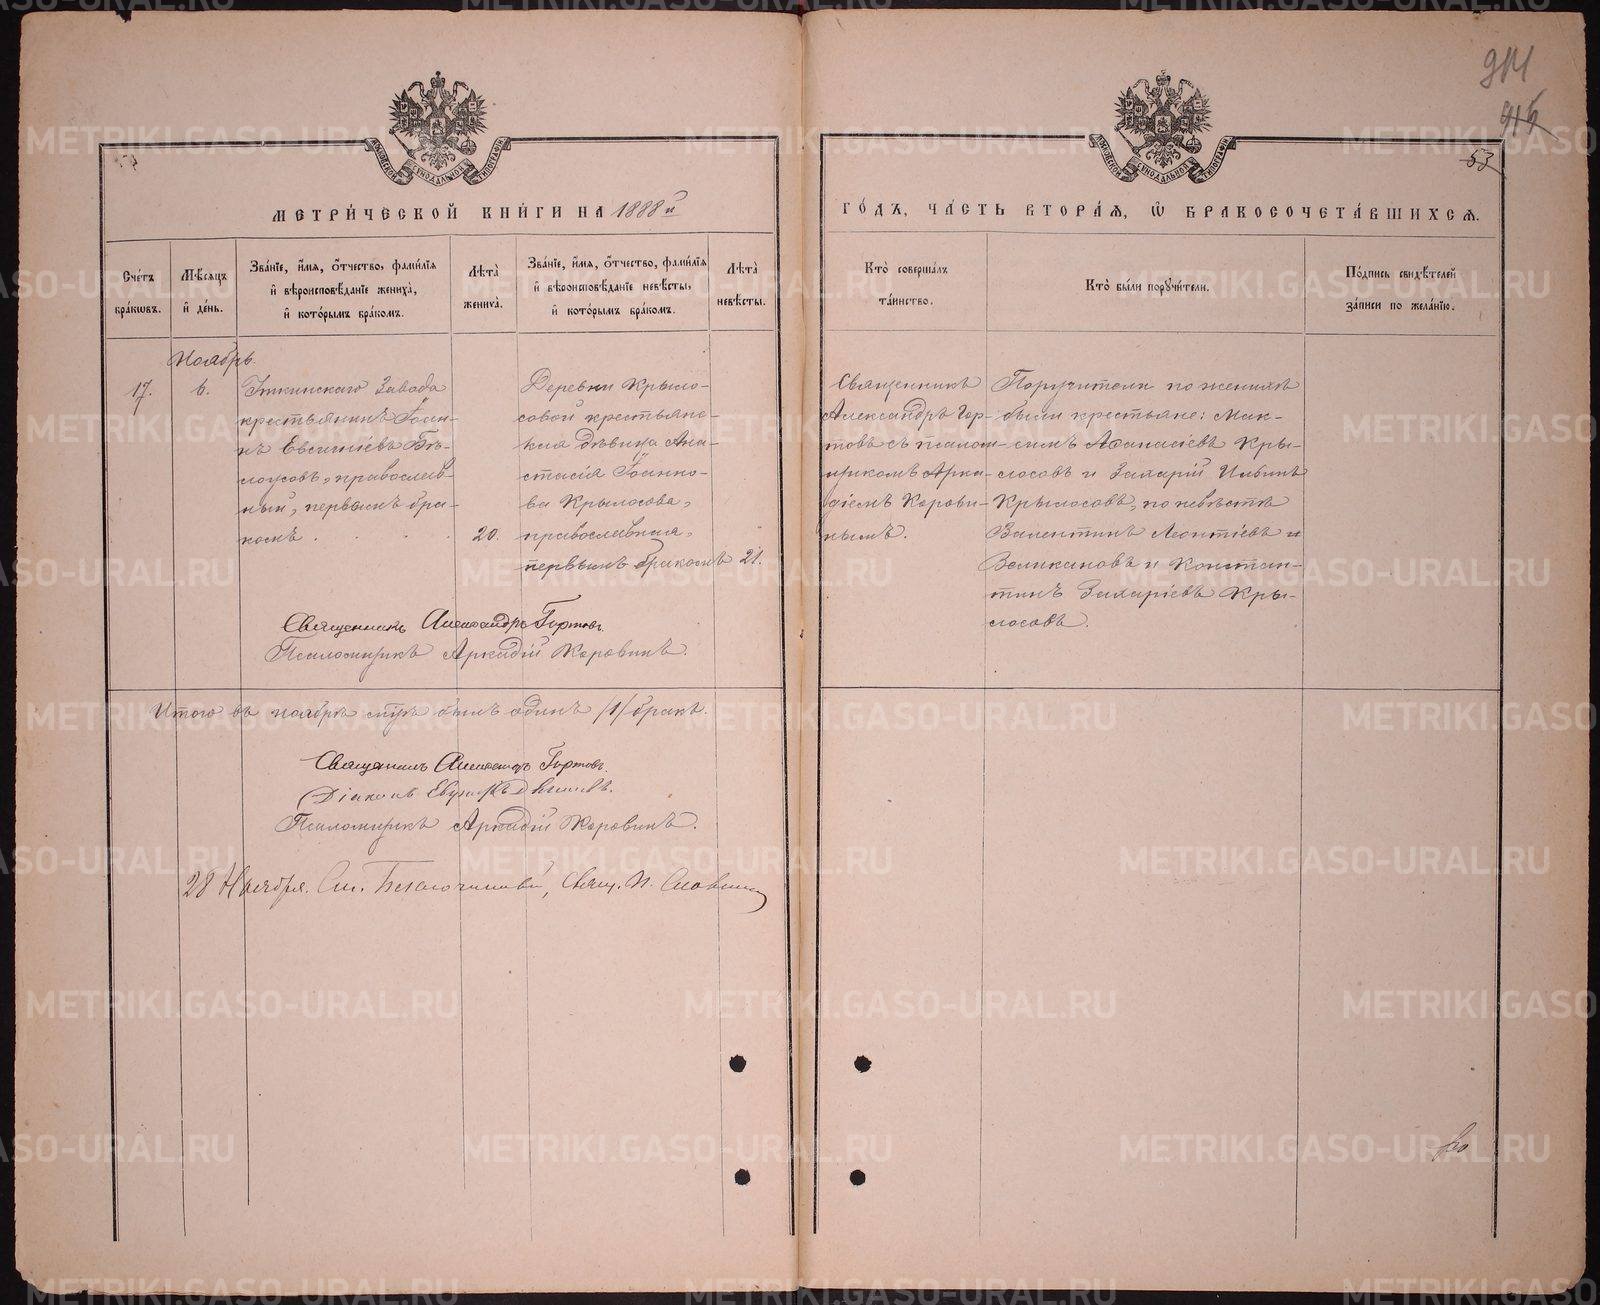 МЕТРИ́ЧЕСКОЙ КНИ́ГИ НА 1888й
ГО́ДЪ, ЧА́СТЬ ВТОРА́Я, Ѿ БРАКОСОЧЕТА́ВШИХСЯ.
53
Сче́тъ бра́кωвъ.
Мѣ́сяцъ и҆ де́нь.
Зва́нїе, и҆́мя, ѻ҆́тчество, фами́лїя и҆ вѣроисповѣ́данїе жениха̀, и҆ кото́рымъ бра́комъ.
Лѣ́та жениха̀.
Зва́нїе, и҆́мя, ѻ҆́тчество, фами́лїя и҆ вѣроисповѣ́данїе невѣ́сты, и҆ кото́рымъ бра́комъ.
Лѣ́та невѣ́сты.
Кто̀ соверша́лъ та́инство.
Кто̀ бы́ли поручи́тели.
По́дпись свидѣ́телей за́писи по жела́нїю.
Ноябрь.
17.
6.
Уткинскаго Завода
крестьянинъ Іоан-
нъ Евсигніевъ Бѣ-
лоусовъ, православ-
ный, первымъ бра-
комъ
20.
Деревни Крыло-
совой крестьянс-
кая дѣвица Ана-
стасія Іоанно-
ва Крылосова,
православная,
первымъ бракомъ
21.
Священникъ
Александръ Гор-
товъ съ псалом-
щикомъ Арка-
діемъ Корови-
нымъ.
Поручители по женихѣ
были крестьяне: Мак-
симъ Аѳанасіевъ Кры-
лосовъ и Захарій Ильинъ
Крылосовъ, по невѣстѣ
Валентинъ Леонтіевъ
Великановъ и Констан-
тинъ Захаріевъ Кры-
лосовъ.
Священникъ Александръ Гортовъ.
Псаломщикъ Аркадій Коровинъ.
Итого въ ноябрѣ мѣсяцѣ былъ одинъ /1/ бракъ.
Священникъ Александръ Гортовъ.
Діаконъ
Псаломщикъ Аркадій Коровинъ.
28 Ноября. См. Благочинный, Свящ. П. Словцовъ
METRIKI.GASO-URAL.RU